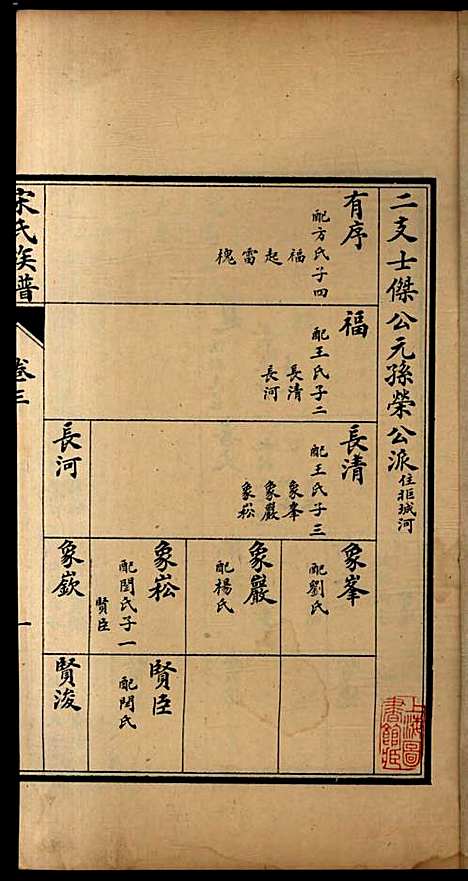 二支士傑公元孫榮公派住拒城河
有序
配方氏子四
福
起
雷
槐
福
配王氏子二
長清
長河
長清
配王氏子三
象峯
象巖
象崧
長河
象峯
配劉氏
象巖
配楊氏
象崧
配閆氏子一
賢臣
象嶔
賢臣
配閆氏
賢浚
宋氏族譜
卷三
一
上海圖書館